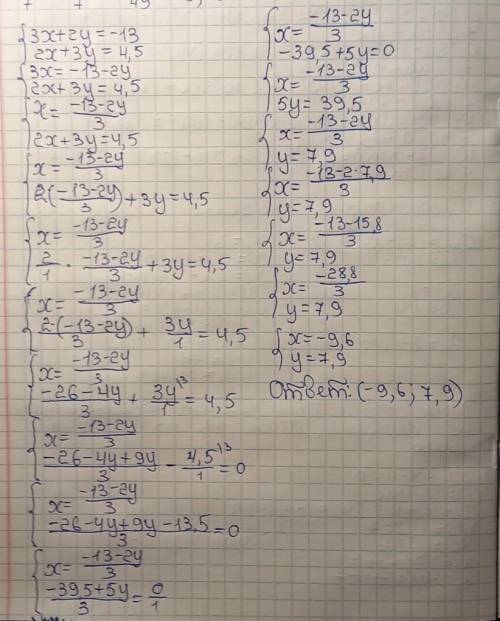 3x+2y=-13
2x+3y=4,5
3x=-13-2y
2x+3y=4,5
x= -13-2y/3
2x+3y=4,5
x= -13-2y/3
2(-13-2y/3)+3y=4,5
x= -13-2y/3
2/1 · -13-2y/3 +3y=4,5
x= -13-2y/3
2(-13-2y)/3 + 3y/1 =4,5
x= -13-2y/3
-26-4y/3 + 3y/1 ⁾³ =4,5
x= -13-2y/3
-26-4y+9y/3 - 4,5/1 ⁾³ =0
x= -13-2y/3
-26-4y+9y-13,5/3 =0
x= -13-2y/3
-39,5+5y/3 = 0/1
x= -13-2y/3
-39,5+5y=0
x= -13-2y/3
5y=39,5
x= -13-2y/3
y=7,9
x= -13-2·7,9/3
y=7,9
x= -13-15,8/3
y=7,9
x= -28,8/3
y=7,9
x=-9,6
y=7,9
Ответ: (-9,6; 7,9)